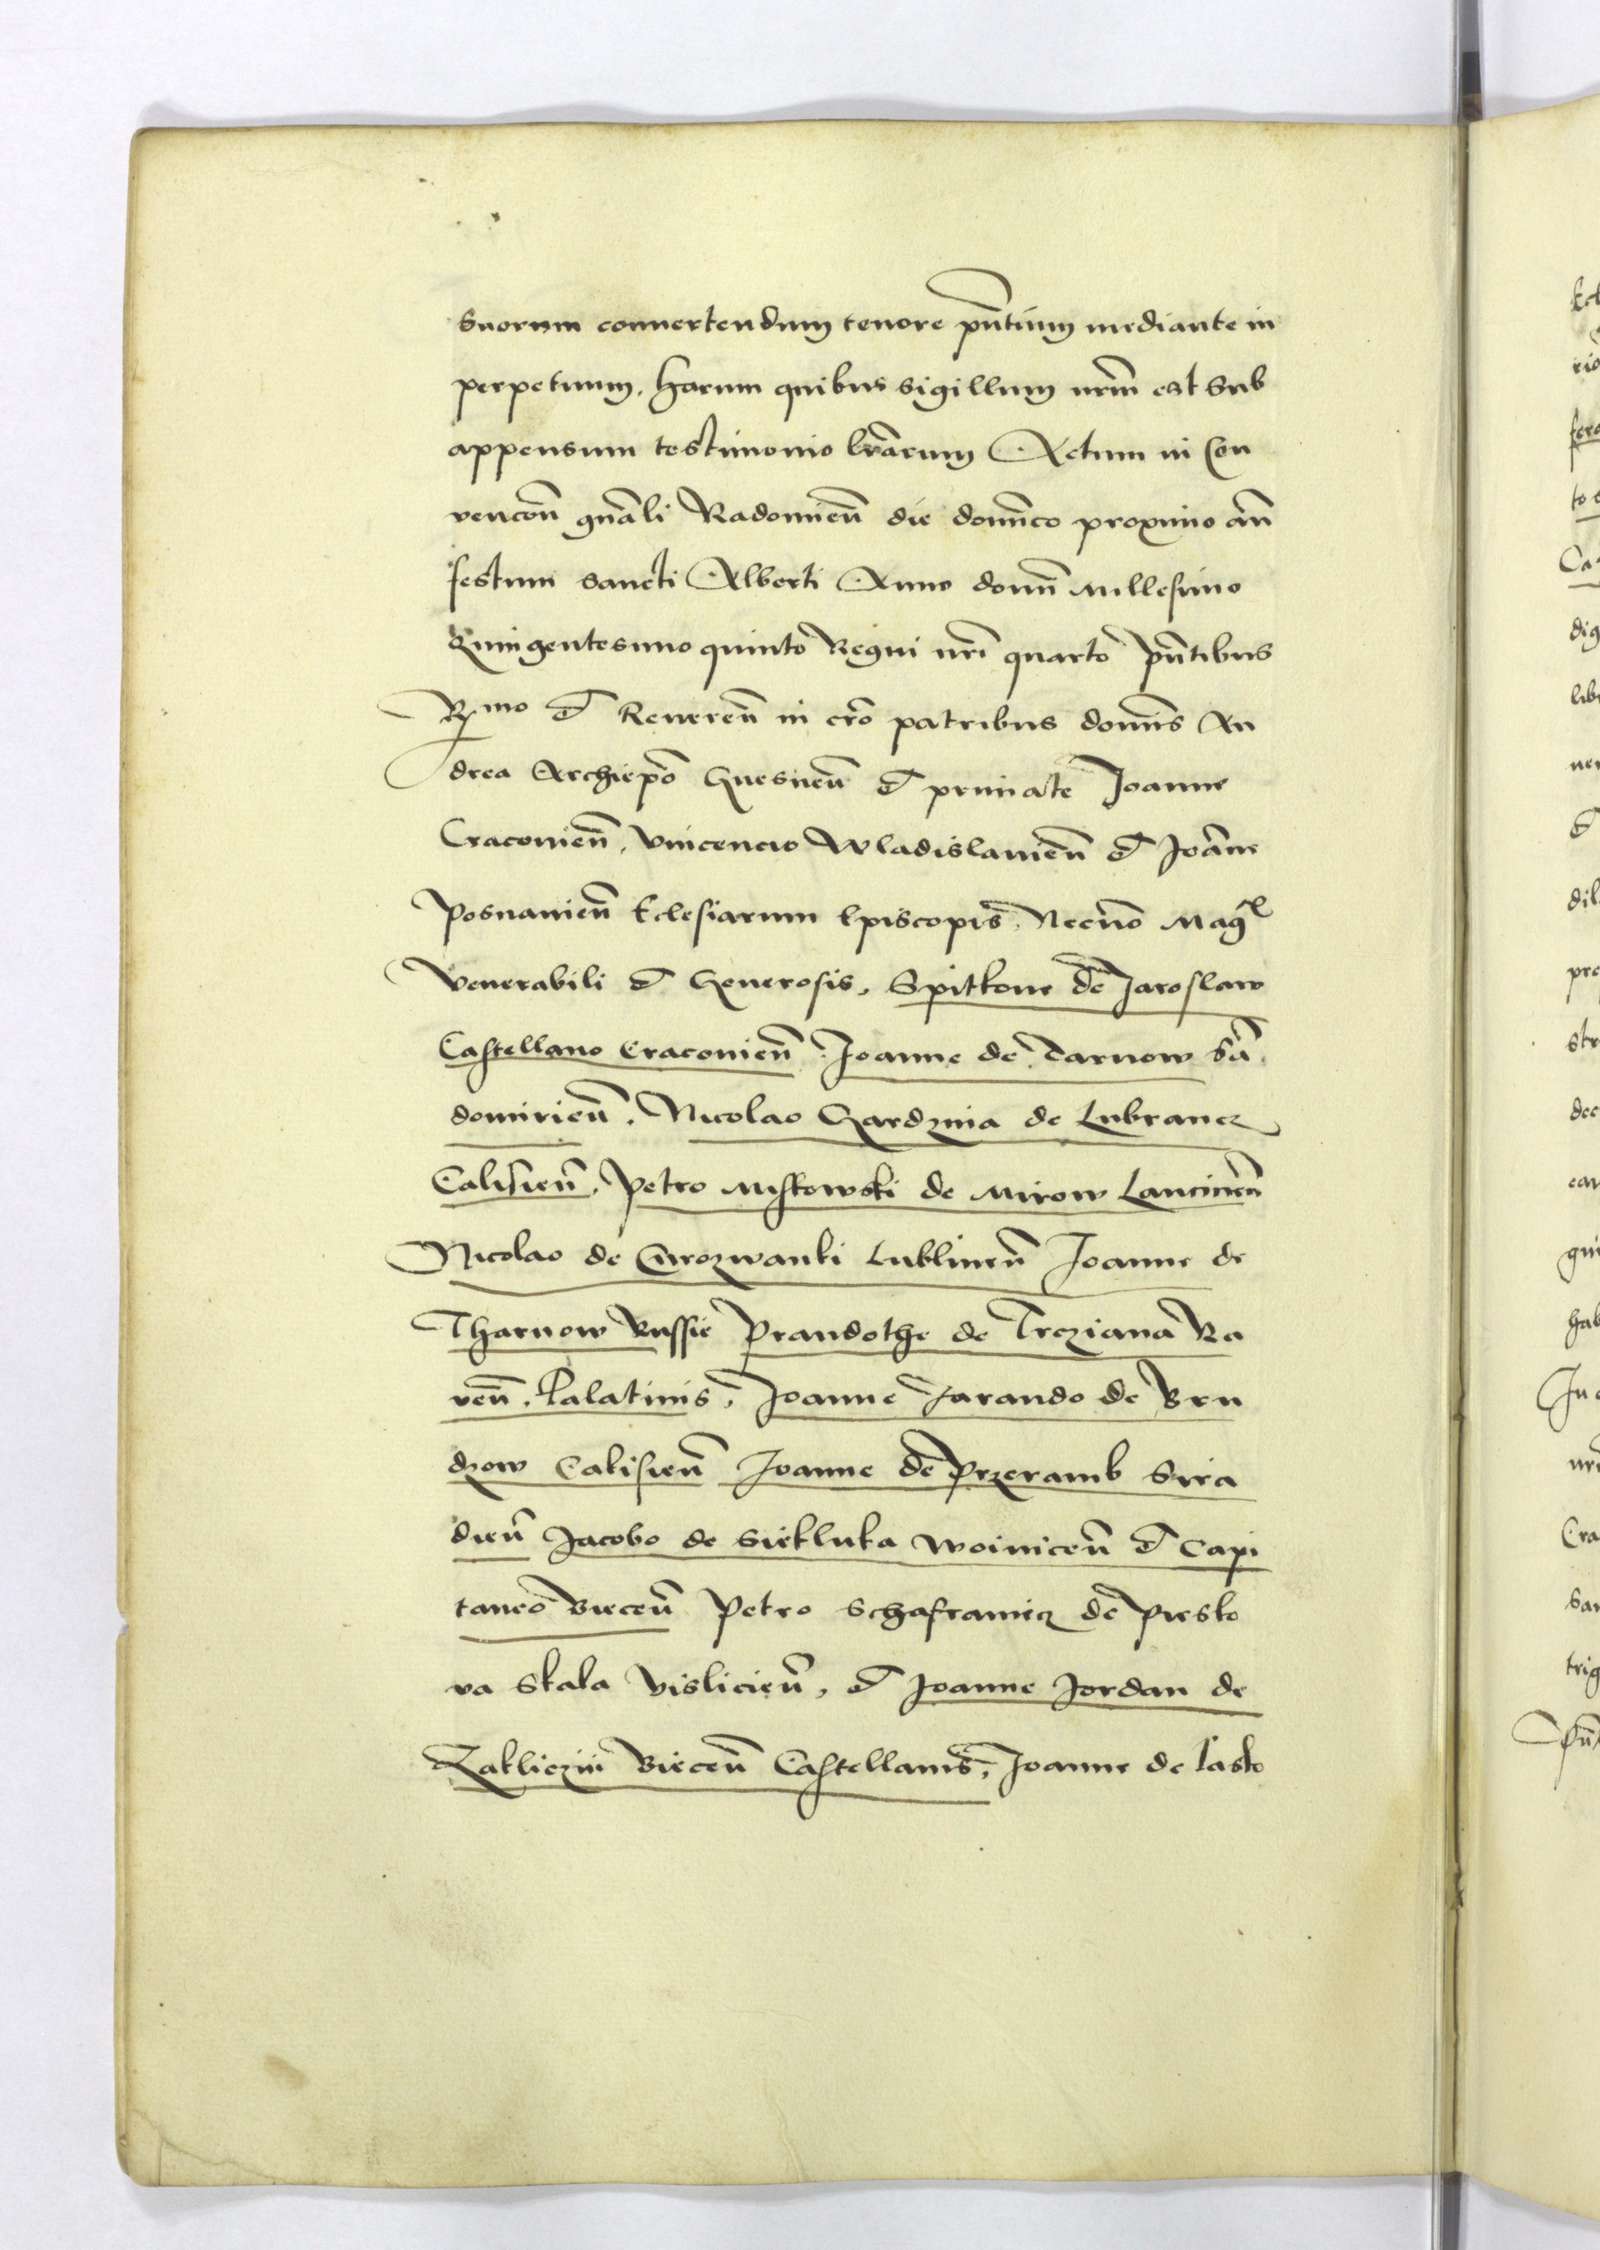 suorum conuertendum tenore pñtium mediante in
perpetuum. Harum quibus sigillum nrm̃ est sub
appensum testimonio lrãrum Actum in Con
vencõn gnãli Radomieñ die domĩco proximo añ
festum sancti Alberti Anno domĩ Millesimo
Quingentesimo quinto Regni nrĩ quarto pñtibus
Rmo et Reuereñ in crõ patribus domĩs An
drea Archiepõ Gnesneñ et primate Joanne
Cracouieñ, Vincencio Wladislauieñ et Joãne
Posnanieñ Eclesiarum Episcopis, Necnõ Magl
Venerabili et Generosis, Spitkone de Jaroslaw
Castellano Cracouieñ, Joanne de Tarnow Sã
domirieñ, Nicolao Gardzina de Lubrancz
Calisieñ, Petro Miskowski de Mirow Lanciciеñ
Nicolao de Curozwanki Lublineñ Joanne de
Tharnow Russie Prandothe de Trcziana Ra
veñ, Palatinis, Joanne Jarando de Bru
dzow Calisieñ Joanne de Przeramb Sira
dieñ Jacobo de Siekluka Woiniceñ et Capi
taneo Bieceñ Petro Schafraniecz de Piesko
va Skala Vislicieñ, et Joanne Jordan de
Zakliczin Bieceñ Castellanis, Joanne de Lasko